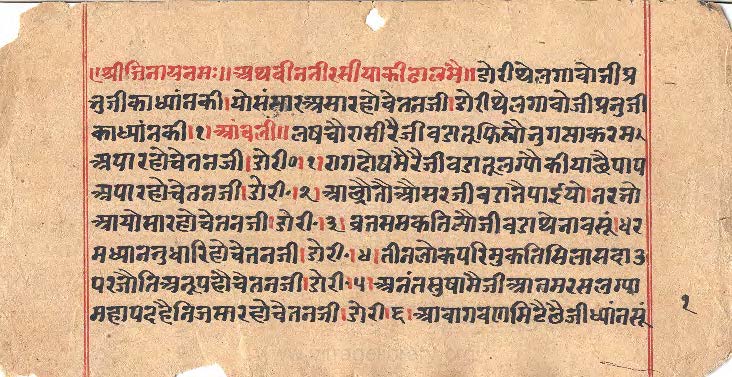 ॥श्रीजिनायनमः॥अथवीनतीरसीयाकीढालमै॥डोरीथेलगावोजीप्र
नुजीकाध्यांनकी।योसंसारअसारहोचेतनजी।डोरीथेलगावोजीप्रनुजी
काध्यांनकी।१।आंचली॥लषचौरासीरैजीवडातूफिस्यौनुगत्साकरम
अपारहोचेतनजी।डोरी०।१।रागदोषमैरैजीवडातूलग्यौकीयाछैपाप
अपारहोचेतनजी।डोरी०।२।आछौतौऔसरजीवडातैपाईयो।नरनो
आयोसारहोचेतनजी।डोरी०।३।व्रतसमकतिल्यौजीवडाथेनावसूं।धर
मध्याननुधारिहोचेतनजी।डोरी०।४।तीनलोकपरिमुकतिसिलासदाउ
परजौतिअनूपहौचेतनजी।डोरी०।५।अनंतसुषामैजीआतमरसलग्या
महापदहैनिजसारहोचेतनजी।डोरी०।६।आवागवणमिटैछैजीध्यांनसूं
१